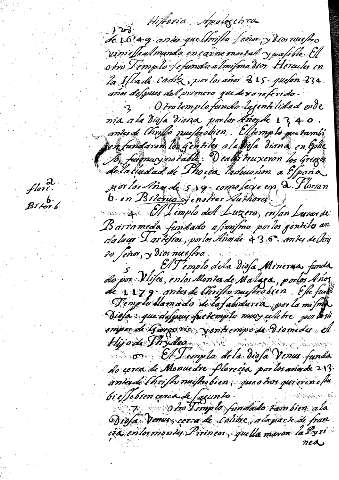 Historia Apologetica
128
de 1649. antes que Christo señor, y dios nuestro
viniesse al mundo, en carne mortal, y pasible. El
otro Templo se fundo a el mismo dios Hercules en
la Isla de Cadiz, por los años 815. que son 834
años despues del primero que da referido.
3. Otro templo fundo la gentilidad en De
nia a la diosa diana por los Años de 1340.
antes de Christo nuestro bien. El templo que tambi
en fundaron los gentiles a la diosa diana en
fue muy notable: Destruyeron los Griegos
de la ciudad de Phocia
por los Años de 549. como se ve en a. Florian
b. en Biterbo y en otros Authores.
a
flori.
b
Biterb
4. El Templo del Luzero, en San Lucar de
Barrameda fundado assimismo por los gentiles
Tartesios, por los Años de 436. antes de Chris
to señor, y dios nuestro.
5. El Templo de la Diosa Minerva, funda
do por Ulises, en los Montes de Malaga, por los Años
de 1179. antes de Christo nuestro bien. Este fue
Templo llamado de la sabiduria, por la misma
Diosa: que despues fue templo muy celebre por
tiempo de Gargoris, y en tiempo de Diomedes el
Hijo de Thydeo
6. El Templo de la diosa Venus funda
do cerca de Monvedre florecia por los años de 213.
antes de Christo nuestro bien, que otros quieren esta
bi esse bien cerca de Sagunto.
7. Otro Templo fundado tambien a la
Diosa Venus, cerca de Colibre, a la parte de Fran
cia en los montes Pirineos, que llamaron la Pyri
nea